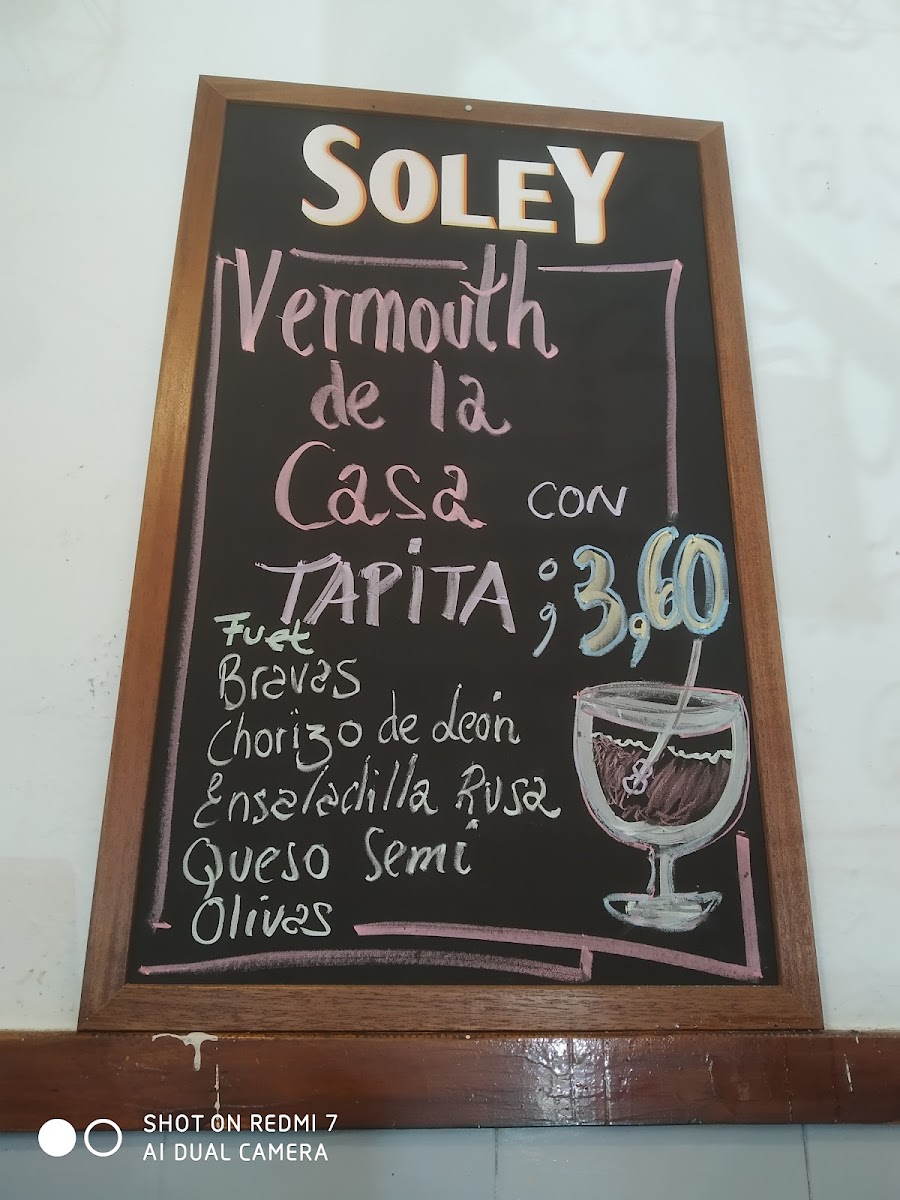 SOLEY
Vermouth
de la
Casa CON
TAPITA ; 3,60
Fuet
Bravas
Chorizo de León
Ensaladilla Rusa
Queso Semi
Olivas
SHOT ON REDMI 7
AI DUAL CAMERA